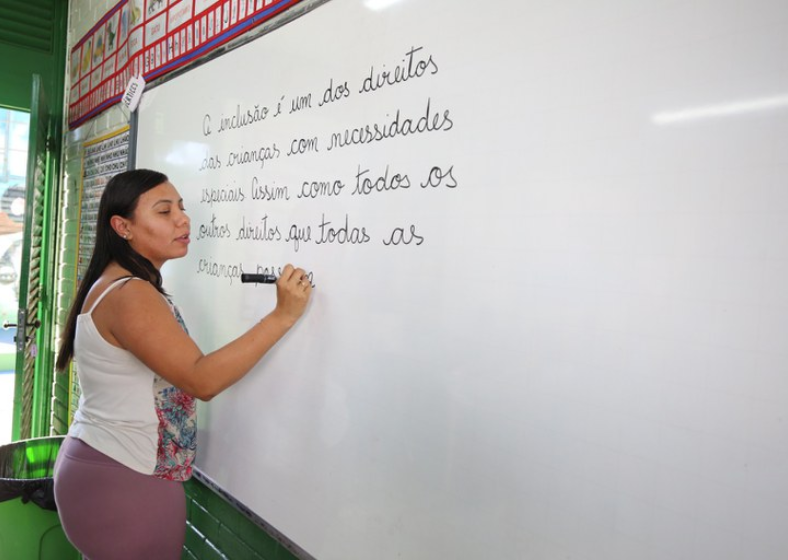 A inclusão é um dos direitos
das crianças com necessidades
especiais. Assim como todos os
outros direitos que todas as
crianças